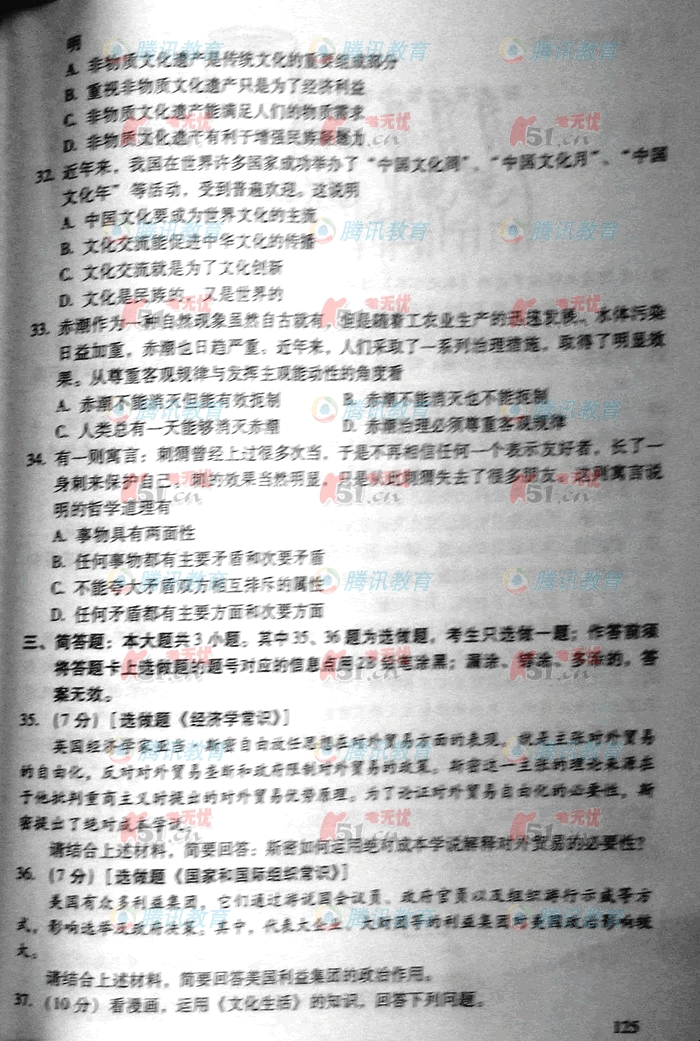 明
A. 非物质文化遗产是传统文化的重要组成部分
B. 重视非物质文化遗产只是为了经济利益
C. 非物质文化遗产能满足人们的物质需求
D. 非物质文化遗产有利于增强民族凝聚力
32. 近年来，我国在世界许多国家成功举办了“中国文化周”、“中国文化月”、“中国
文化年”等活动，受到普遍欢迎。这说明
A. 中国文化要成为世界文化的主流
B. 文化交流能促进中华文化的传播
C. 文化交流就是为了文化创新
D. 文化是民族的，又是世界的
33. 赤潮作为一种自然现象虽然自古就有，但是随着工农业生产的迅速发展，水体污染
日益加重，赤潮也日趋严重。近年来，人们采取了一系列治理措施，取得了明显效
果。从尊重客观规律与发挥主观能动性的角度看
A. 赤潮不能消灭但能有效扼制 B. 赤潮不能消灭也不能扼制
C. 人类总有一天能够消灭赤潮 D. 赤潮治理必须尊重客观规律
34. 有一则寓言：刺猬曾经上过很多次当，于是不再相信任何一个表示友好者，长了一
身刺来保护自己。刺的效果当然明显，只是从此刺猬失去了很多朋友。这则寓言说
明的哲学道理有
A. 事物具有两面性
B. 任何事物都有主要矛盾和次要矛盾
C. 不能夸大矛盾双方相互排斥的属性
D. 任何矛盾都有主要方面和次要方面
三、简答题：本大题共3小题。其中35、36题为选做题，考生只选做一题；作答前须
将答题卡上选做题的题号对应的信息点用2B铅笔涂黑；漏涂、错涂、多涂的，答
案无效。
35. (7分) [选做题《经济学常识》]
英国经济学家亚当·斯密自由放任思想在对外贸易方面的表现，就是主张对外贸易
的自由化，反对对外贸易垄断和政府限制对外贸易的政策。斯密这一主张的理论来源在
于他批判重商主义时提出的对外贸易优势原理。为了论证对外贸易自由化的必要性，斯
密提出了绝对成本学说。
请结合上述材料，简要回答：斯密如何运用绝对成本学说解释对外贸易的必要性？
36. (7分) [选做题《国家和国际组织常识》]
美国有众多利益集团，它们通过游说国会议员、政府官员以及组织游行示威等方
式，影响选举及政府决策。其中，代表大企业、大财团等的利益集团对美国政治影响极
大。
请结合上述材料，简要回答美国利益集团的政治作用。
37. (10分) 看漫画，运用《文化生活》的知识，回答下列问题。
125
腾讯教育
考无忧
51.cn